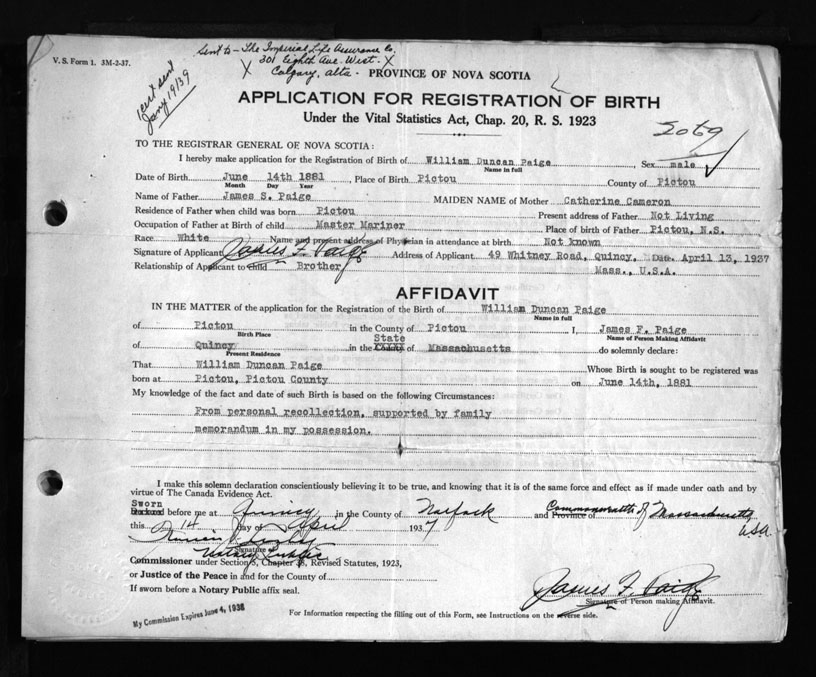 V. S. Form 1. 3M-2-37.
Sent to - The Imperial Life Assurance Co.
301 Eighth Ave. West. X
X Calgary, Alta -
Cert sent
Jan 19/39
PROVINCE OF NOVA SCOTIA
APPLICATION FOR REGISTRATION OF BIRTH
Under the Vital Statistics Act, Chap. 20, R. S. 1923
TO THE REGISTRAR GENERAL OF NOVA SCOTIA:
I hereby make application for the Registration of Birth of William Duncan Paige, Sex male
Name in full
Date of Birth June 14th 1881, Place of Birth Pictou County of Pictou
Month Day Year
Name of Father James S. Paige MAIDEN NAME of Mother Catherine Cameron
Residence of Father when child was born Pictou Present address of Father Not Living
Occupation of Father at Birth of child Master Mariner Place of birth of Father Pictou, N.S.
Race White Name and present address of Physician in attendance at birth Not known
Signature of Applicant James F. Paige Address of Applicant 49 Whitney Road, Quincy, Date April 13, 1937
Relationship of Applicant to Child Brother Mass., U.S.A.
AFFIDAVIT
IN THE MATTER of the application for the Registration of the Birth of William Duncan Paige
Name in full
of Pictou in the County of Pictou I, James F. Paige
Birth Place Name of Person Making Affidavit
State
of Quincy in the County of Massachusetts do solemnly declare:
Present Residence
That William Duncan Paige Whose Birth is sought to be registered was
born at Pictou, Pictou County on June 14th, 1881
My knowledge of the fact and date of such Birth is based on the following Circumstances:
From personal recollection, supported by family
memorandum in my possession.
I make this solemn declaration conscientiously believing it to be true, and knowing that it is of the same force and effect as if made under oath and by
virtue of The Canada Evidence Act.
Sworn
Declared before me at Quincy in the County of Norfolk and Province of Commonwealth of Massachusetts
USA.
this 14 day of April 1937
Signature of
Notary Public
Commissioner under Section 5, Chapter 38, Revised Statutes, 1923,
or Justice of the Peace in and for the County of
If sworn before a Notary Public affix seal.
James F. Paige
Signature of Person making Affidavit.
My Commission Expires June 4, 1938
For Information respecting the filling out of this Form, see Instructions on the reverse side.